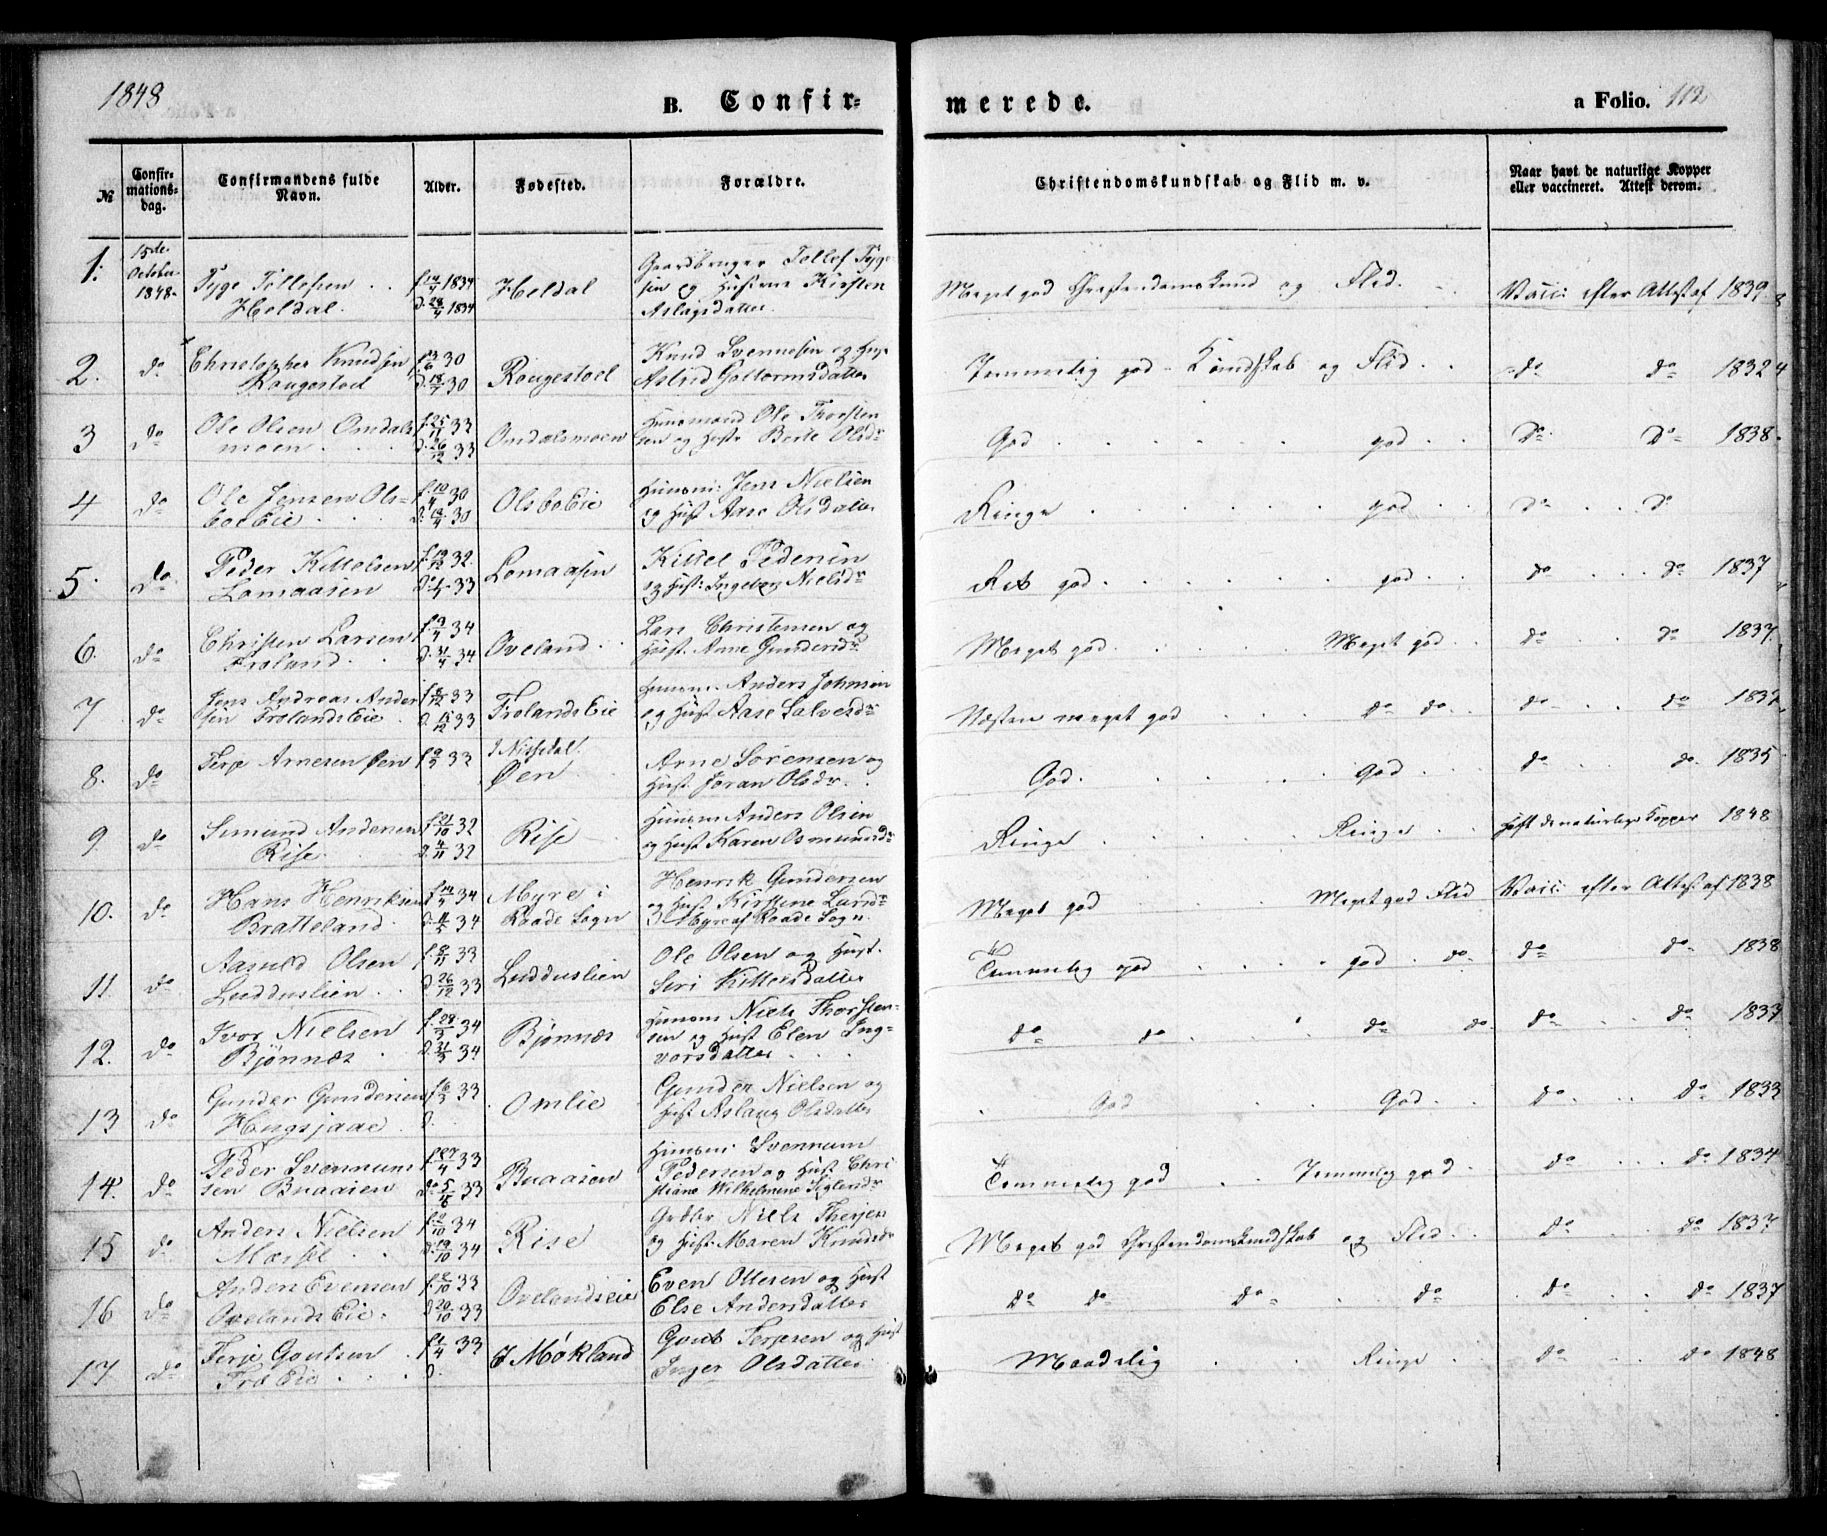 1848
B. Confir-
merede.
a Folio. 112
№
Confir-
mations-
dag.
Confirmandens fulde
Navn.
Alder.
Fødested.
Forældre.
Christendomskundskab og Flid m. v.
Naar havt de naturlige Kopper
eller vaccineret. Attest derom.
1. 15de October 1848. Tyge Tollefsen Heldal. Heldal Gaardbruger Tollef Tyge-
sen og Hustrue Kirsten
Aslagsdatter
Meget god Christendomskund og Flid. Vacci efter Attest af 1839
2. do Christopher Knudsen
Rougestoel Rougestoel Knud Svennesen og Hus
Astrid Guttormsdatter
Temmelig god Kundskab og Flid do do 1832
3 do Ole Olsen Omdals
moen f. 25/11 33
d. 26/12 33 Omdalsmoen Huusmand Ole Thorsten
sen og Hustr Berte Olsdr
God god do do 1838
4 do Ole Jensen Ols-
boe Eie f. 10/4 30
d. 13/4 30 Olsbo Eie Huusm: Jens Nielsen
og Hust Aase Olsdatter
Ringe god do do
5. do Peder Kittelsen
Lomaasen Lomaasen Kittel Pedersen
og Hust: Ingeborg Nielsdr
Ret god god do do 1837
6. do Christen Larsen
Froland Oveland Lars Christensen og
Hust. Anne Gundersdr
Meget god Meget god do do 1837
7 do Jens Andreas Ander
sen Frolands Eie Frolands Eie Huusm. Anders Johnsen
og Hust Aase Salvesdr
Næsten meget god do do do do 1837
8. do Terje Arnesen Øen I Nissedal
Øen Arne Sørensen og
Hust. Joran Olsdr
God. God do do 1835
9. do Simund Andersen
Rise f. 21/10 32
d. 4/11 32 Rise Huusm Anders Olsen
og Hust Karen Osmundsdr
Ringe Ringe Haft de naturlige Kopper 1848
10. do Hans Henriksen
Bratteland Myre i
Raade Sogn Henrik Gundersen
og Hust Kirstine Larsdr
Myre af Raade Sogn.
Meget god Meget god Flid Vacci efter Attest af 1838
11 do Aasuld Olsen
Ludduslien f. 8/11 33
d. 26/12 33 Ludduslien Ole Olsen og Hust.
Siri Kittelsdatter
Temmelig god god do do do 1838
12. do Ivor Nielsen
Bjønnæs Bjønnæs Huusm Niels Thorsten-
sen og Hust Elen Ing-
vorsdatter
do do do do do do 1837
13 do Gunder Gundersen
Hugsjaae f. 6/3 33
d. Omlie Gunder Nielsen og
Hust Aslaug Olsdatter
God God do do 1833
14. do Peder Svennum
sen Buaasen Buaasen Huusm: Svennum
Pedersen og Hust Chri
stiane Wilhelmine
Temmelig god Temmelig god do do 1834
15 do Anders Nielsen
Messel Rise Grdbr Niels Therjes
og Hust: Maren Knudsdr
Meget god Christendomskundskab og Flid do do 1837
16 do Anders Evensen
Ovelands Eie Ovelandseie Even Ottesen og Hust
Else Andersdatter
do do do do do do 1837
17 do Terje Goutsen
Træ Eie f. 1/4 33
d. I Møkland Gout Terjesen og Hust
Inger Olsdatter
Maadelig Ringe do do 1848